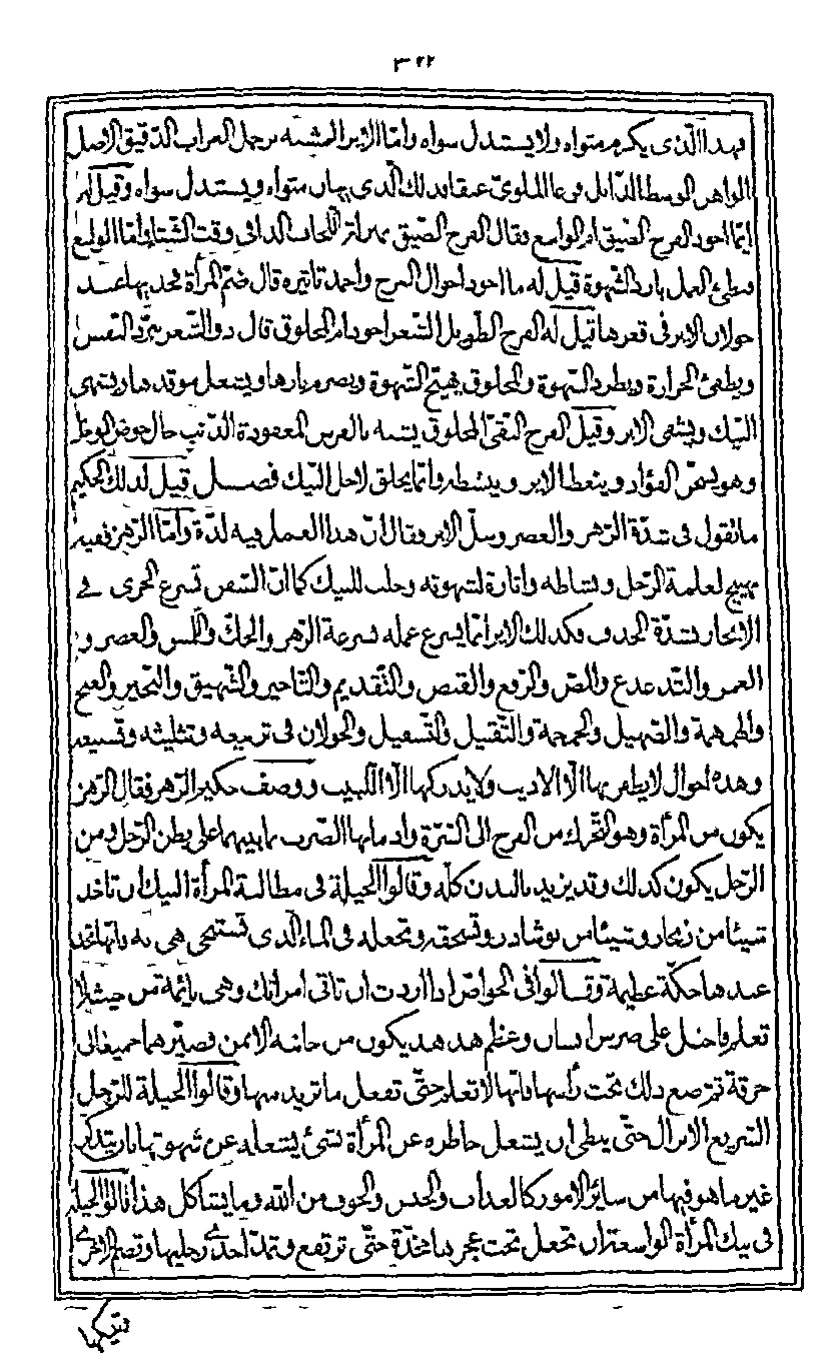 ٣٢٢
فهذا الذي يكرم مثواه ولا يستبدل سواه وأما الاير المشبه برجل الغراب الدقيق الاصل
الواهن الوسط الذابل
الذي يهان مثواه ويستبدل سواه وقيل له
ايما اجود الفرج الضيق ام الواسع فقال الفرج الضيق بمنزلة اللحاف الدافي وقت الشتاء وأما الواسع
بطئ العمل بارد الشهوة قيل له ما اجود احوال الفرج واحمد تاثيره قال ضم المرأة فخذيها عند
جولان الاير في قعرها قيل له الفرج الطويل الشعر اجود ام المحلوق قال ذو الشعر يبرد النفس
ويطفئ الحرارة ويطرد الشهوة والمحلوق يهيج الشهوة ويضرم نارها ويشعل موقدها ويشهى
النيك ويشهى الاير وقيل الفرج النقي المحلوق يشبه بالفرس المعقودة الذنب حال خوض الوحل
وهو يسخن الفؤاد وينعظ الاير وينشطه وانما يحلق لاجل النيك فصــل قيل لذلك الحكيم
ما تقول في شدة الرهز والعصر وسل الاير فقال ان هذا العمل فيه لذة وأما الرهز ففيه
تهييج لغلمة الرجل ونشاطه واثارة لشهوته وجلب للنيك كما ان السفن تسرع الجرى في
الابحار بشدة الجدف فكذلك الاير انما يسرع عمله بسرعة الرهز والحك واللمس والعصر و
الغمز والتدغدغ والضم والرفع والقبض والتقديم والتاخير والشهيق والنخير والغنج
والهمهمة والصهيل والحمحمة والتقبيل والتسفيل والجولان في تربيعه وتثليثه وتسبيعه
وهذه احوال لا يظفر بها الا الاديب ولا يدركها الا اللبيب ووصف حكيم الرهز فقال الرهز
يكون من المرأة وهو التحرك من الفرج الى السرة وادمانها الضرب بما بينهما على بطن الرجل ومن
الرجل يكون كذلك وقد يزيد بالبدن كله وقالوا الحيلة في مطالبة المرأة النيك ان تاخذ
شيئا من زنجار وشيئا من نوشادر وتسحقه وتجعله في الماء الذي تستنجى هي به فانها تجد
عندها حكة عظيمة وقالوا في الخواص اذا اردت ان تاتى امراتك وهى نائمة من حيث لا
تعلم فاحتل على ضرس انسان وعظم هدهد يكون من جانبه الايمن فصيرهما جميعا في
خرقة ثم ضع ذلك تحت رأسها فانها لا تعلم حتى تفعل ما تريد منها وقالوا الحيلة للرجل
السريع الانزال حتى يبطى ان يشغل خاطره عن المرأة بشئ يشغله عن شهوتها بان يتذكر
غير ما هو فيها من سائر الامور كالعذاب والحبس والخوف من الله وما يشاكل هذا قالوا الحيلة
في نيك المرأة الواسعة ان تجعل تحت عجزها مخدة حتى ترتفع وتمد احدى رجليها وتضم الاخرى